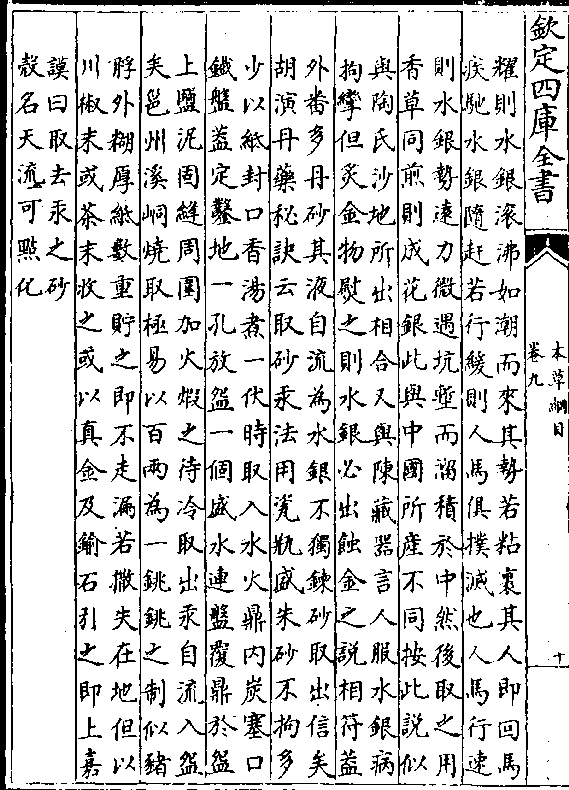 欽定四庫全書
本草綱目
卷九
十
耀則水銀滾沸如潮而來其勢若粘裹其人即回馬
疾馳水銀隨赶若行緩則人馬俱撲滅也人馬行速
則水銀勢遠力微遇坑塹而溜積於中然後取之用
香草同煎則成花銀此與中國所產不同按此說似
與陶氏沙地所出相合又與陳藏器言人服水銀病
拘攣但炙金物熨之則水銀必出蝕金之說相符蓋
外番多丹砂其液自流為水銀不獨鍊砂取出信矣
胡演丹藥秘訣云取砂汞法用瓷瓶盛朱砂不拘多
少以紙封口香湯煮一伏時取入水火鼎內炭塞口
鐵盤蓋定鑿地一孔放盌一個盛水連盤覆鼎於盌
上鹽泥固縫周圍加火煅之待冷取出汞自流入盌
矣邕州溪峒燒取極易以百兩為一銚銚之制似豬
脬外糊厚紙數重貯之即不走漏若撒失在地但以
川椒末或茶末收之或以真金及鍮石引之即上嘉
謨曰取去汞之砂
殼名天流可點化